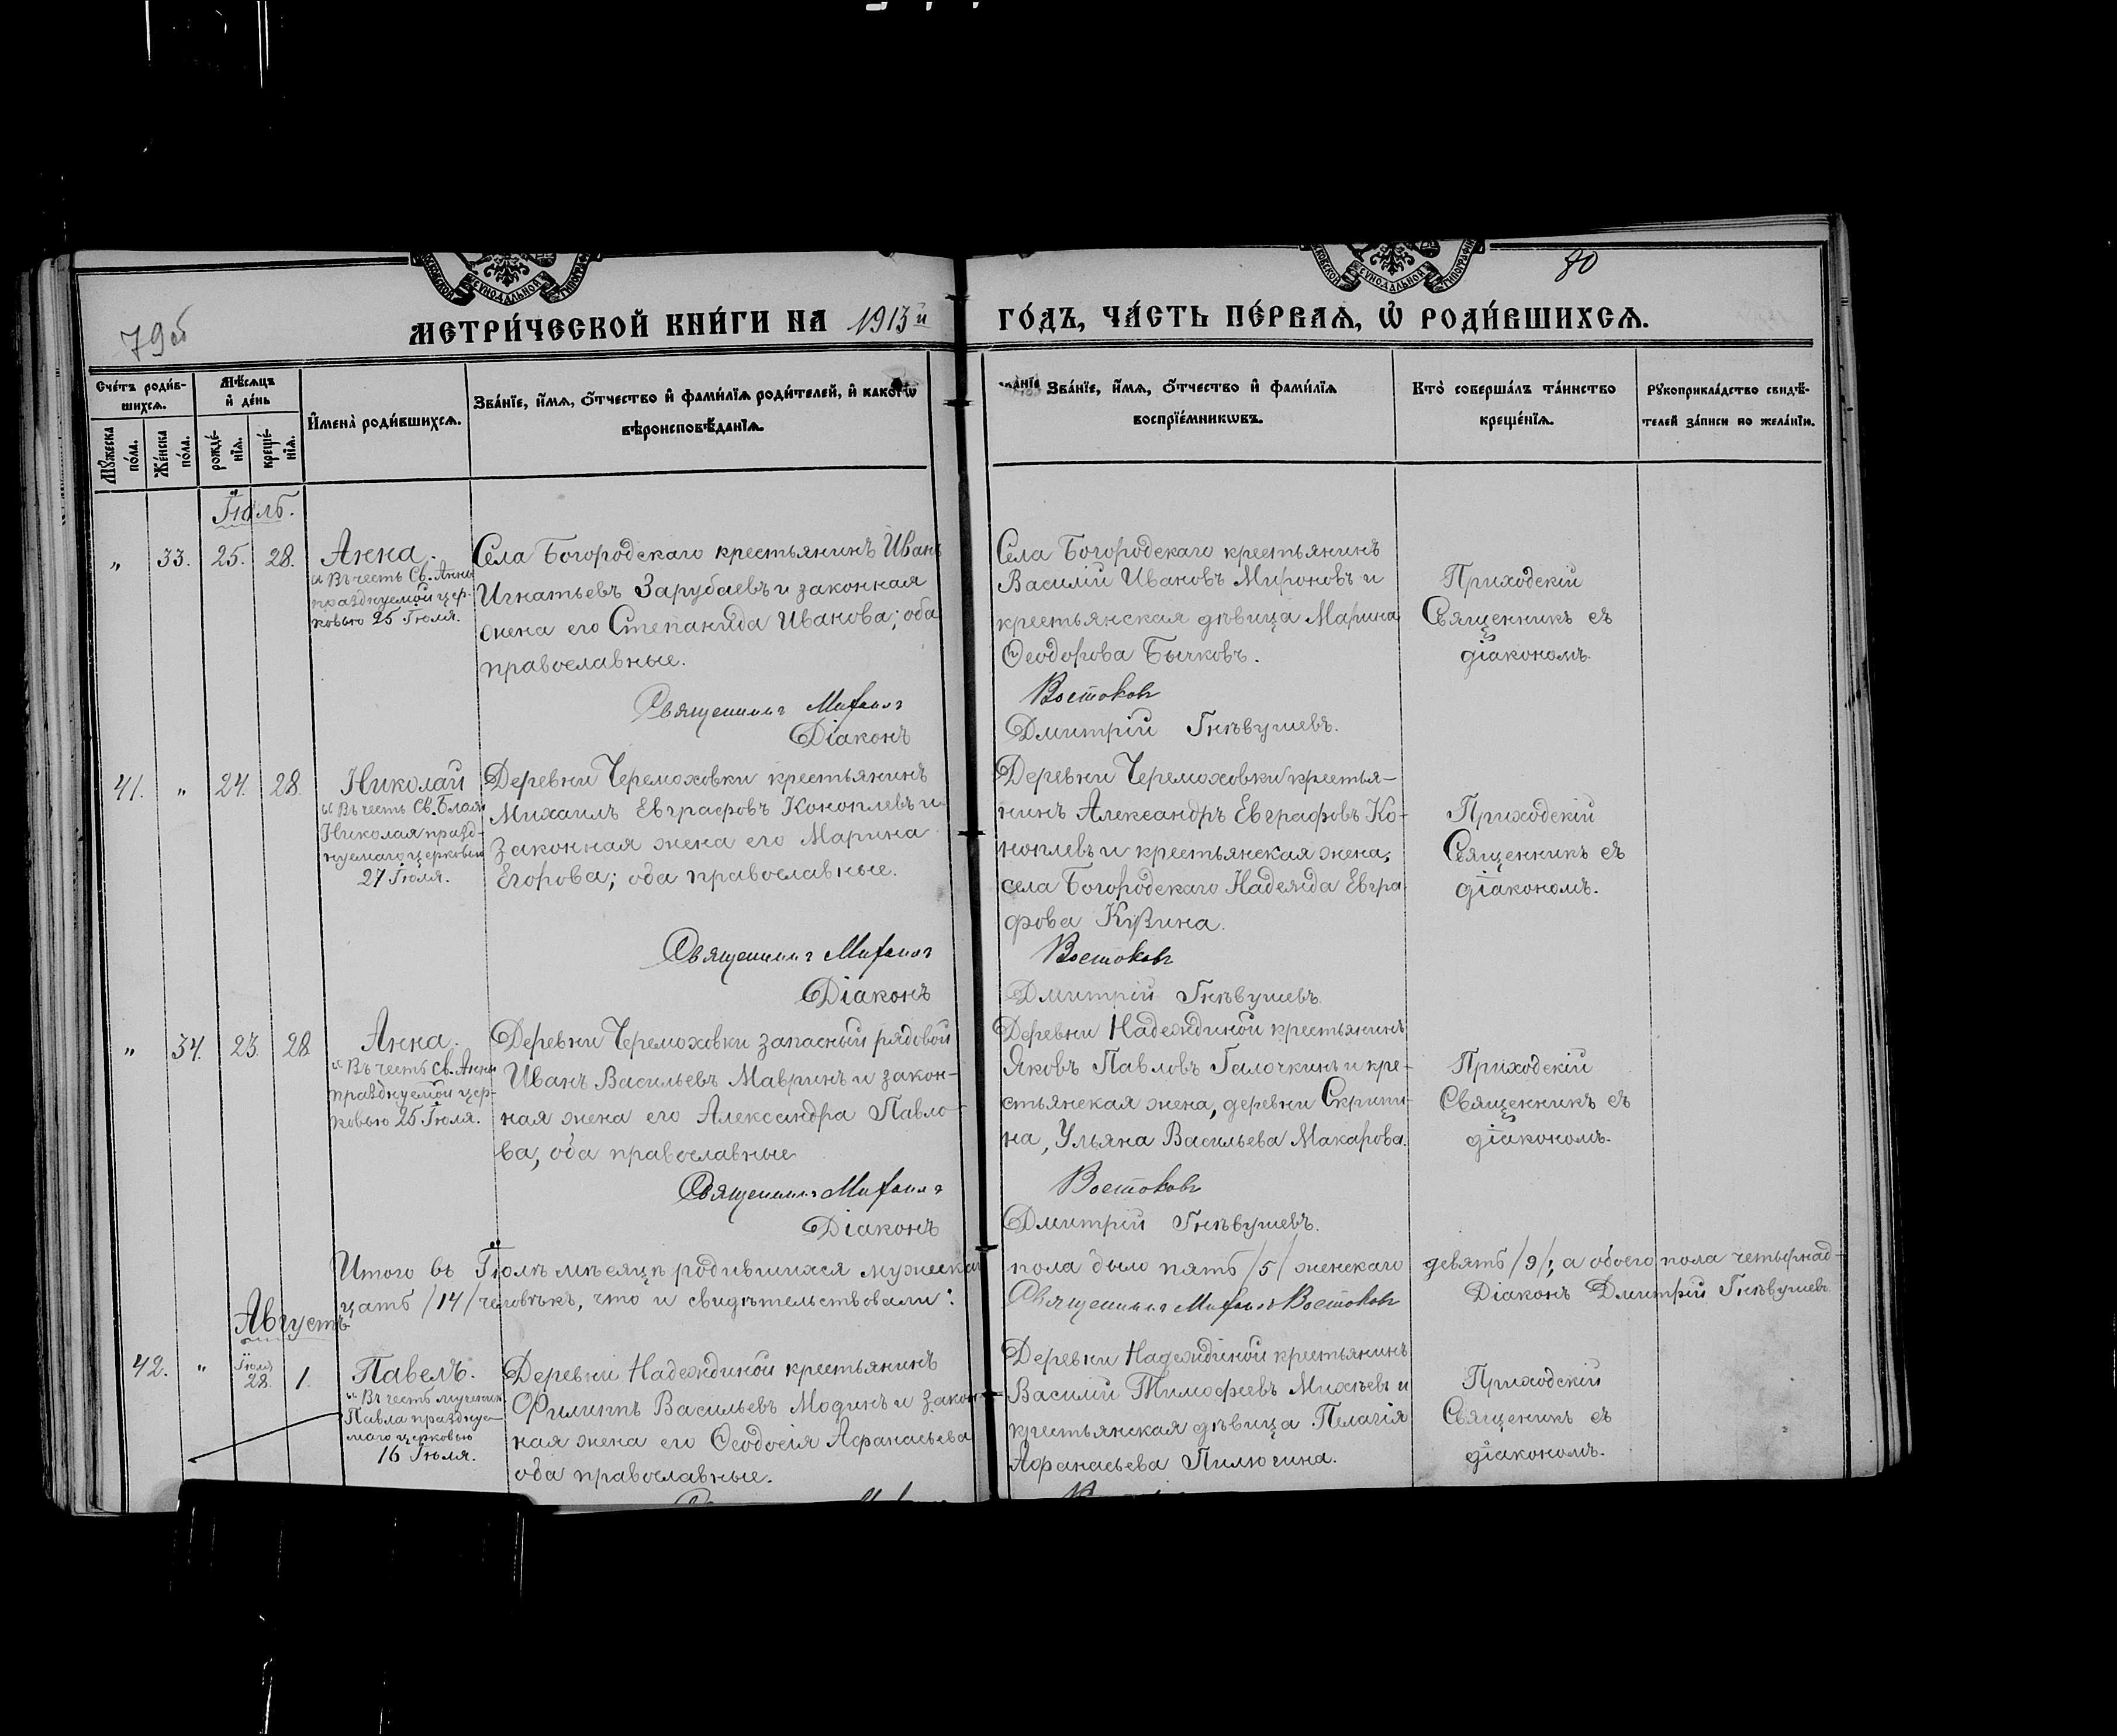 79об
80
МЕТРИ́ЧЕСКОЙ КНИ́ГИ НА 1913й ГО́ДЪ, ЧА́СТЬ ПЕ́РВАѦ, Ѡ҆ РОДИ́ВШИХСѦ.
Сче́тъ роди́в-
шихсѧ.
Мѣ́сѧцъ
и҆ де́нь
Мꙋ́жеска
по́ла.
Же́нска
по́ла.
рожде́-
нїѧ.
креще́-
нїѧ.
И҆мена̀ роди́вшихсѧ.
Зва́нїе, и҆́мѧ, ѻ҆́тчество и҆ фами́лїѧ роди́телей, и҆ какогѡ
вѣроисповѣ́данїѧ.
Зва́нїе, и҆́мѧ, ѻ҆́тчество и҆ фами́лїѧ
воспрїе́мникѡвъ.
Кто̀ соверша́лъ та́инство
креще́нїѧ.
Рꙋкоприкла́дство свидѣ́-
телей за́писи по жела́нїю.
Іюль.
„ 33. 25. 28. Анна.
Въ честь Св. Анны
празднуемой цер-
ковью 25 Іюля.
Села Богородскаго крестьянинъ Иванъ
Игнатьевъ Зарубаевъ и законная
жена его Степанида Иванова; оба
православные.
Села Богородскаго крестьянинъ
Василій Ивановъ Мироновъ и
крестьянская дѣвица Марина
Ѳеодорова Бычковъ.
Приходскій
Священникъ съ
діакономъ.
Священникъ Михаилъ Востоковъ
Діаконъ Дмитрій Гнѣвушевъ.
41. „ 24. 28. Николай
Въ честь Св. Блаж.
Николая празд-
нуемаго церковью
27 Іюля.
Деревни Черемоховки крестьянинъ
Михаилъ Евграфовъ Коноплевъ и
законная жена его Марина
Егорова; оба православные.
Деревни Черемоховки крестья-
нинъ Александръ Евграфовъ Ко-
ноплевъ и крестьянская жена,
села Богородскаго Надежда Евгра-
фова Кузина.
Приходскій
Священникъ съ
діакономъ.
Священникъ Михаилъ Востоковъ
Діаконъ Дмитрій Гнѣвушевъ.
„ 34. 23. 28. Анна.
Въ честь Св. Анны
празднуемой цер-
ковью 25 Іюля.
Деревни Черемоховки запасный рядовой
Иванъ Васильевъ Мавринъ и закон-
ная жена его Александра Павло-
ва, оба православные
Деревни Надеждиной крестьянинъ
Яковъ Павловъ Галочкинъ и кре-
стьянская жена, деревни Скрипи-
на, Ульяна Васильева Макарова.
Приходскій
Священникъ съ
діакономъ.
Священникъ Михаилъ Востоковъ
Діаконъ Дмитрій Гнѣвушевъ.
Итого въ Іюлѣ мѣсяцѣ родившихся мужеска пола было пять /5/ женскаго девять /9/; а обоего пола четырнад-
цать /14/ человѣкъ, что и свидѣтельствовали: Священникъ Михаилъ Востоковъ Діаконъ Дмитрій Гнѣвушевъ.
Августъ
42. „ Іюля 28. 1. Павелъ.
Въ честь мученик.
Павла празднуе-
маго церковью
16 Іюля.
Деревни Надеждиной крестьянинъ
Филиппъ Васильевъ Модинъ и закон-
ная жена его Ѳеодосія Афанасьева
оба православные.
Деревни Надеждиной крестьянинъ
Василій Тимофеевъ Михѣевъ и
крестьянская дѣвица Пелагія
Афанасьева Пилюгина.
Приходскій
Священикъ съ
діакономъ.